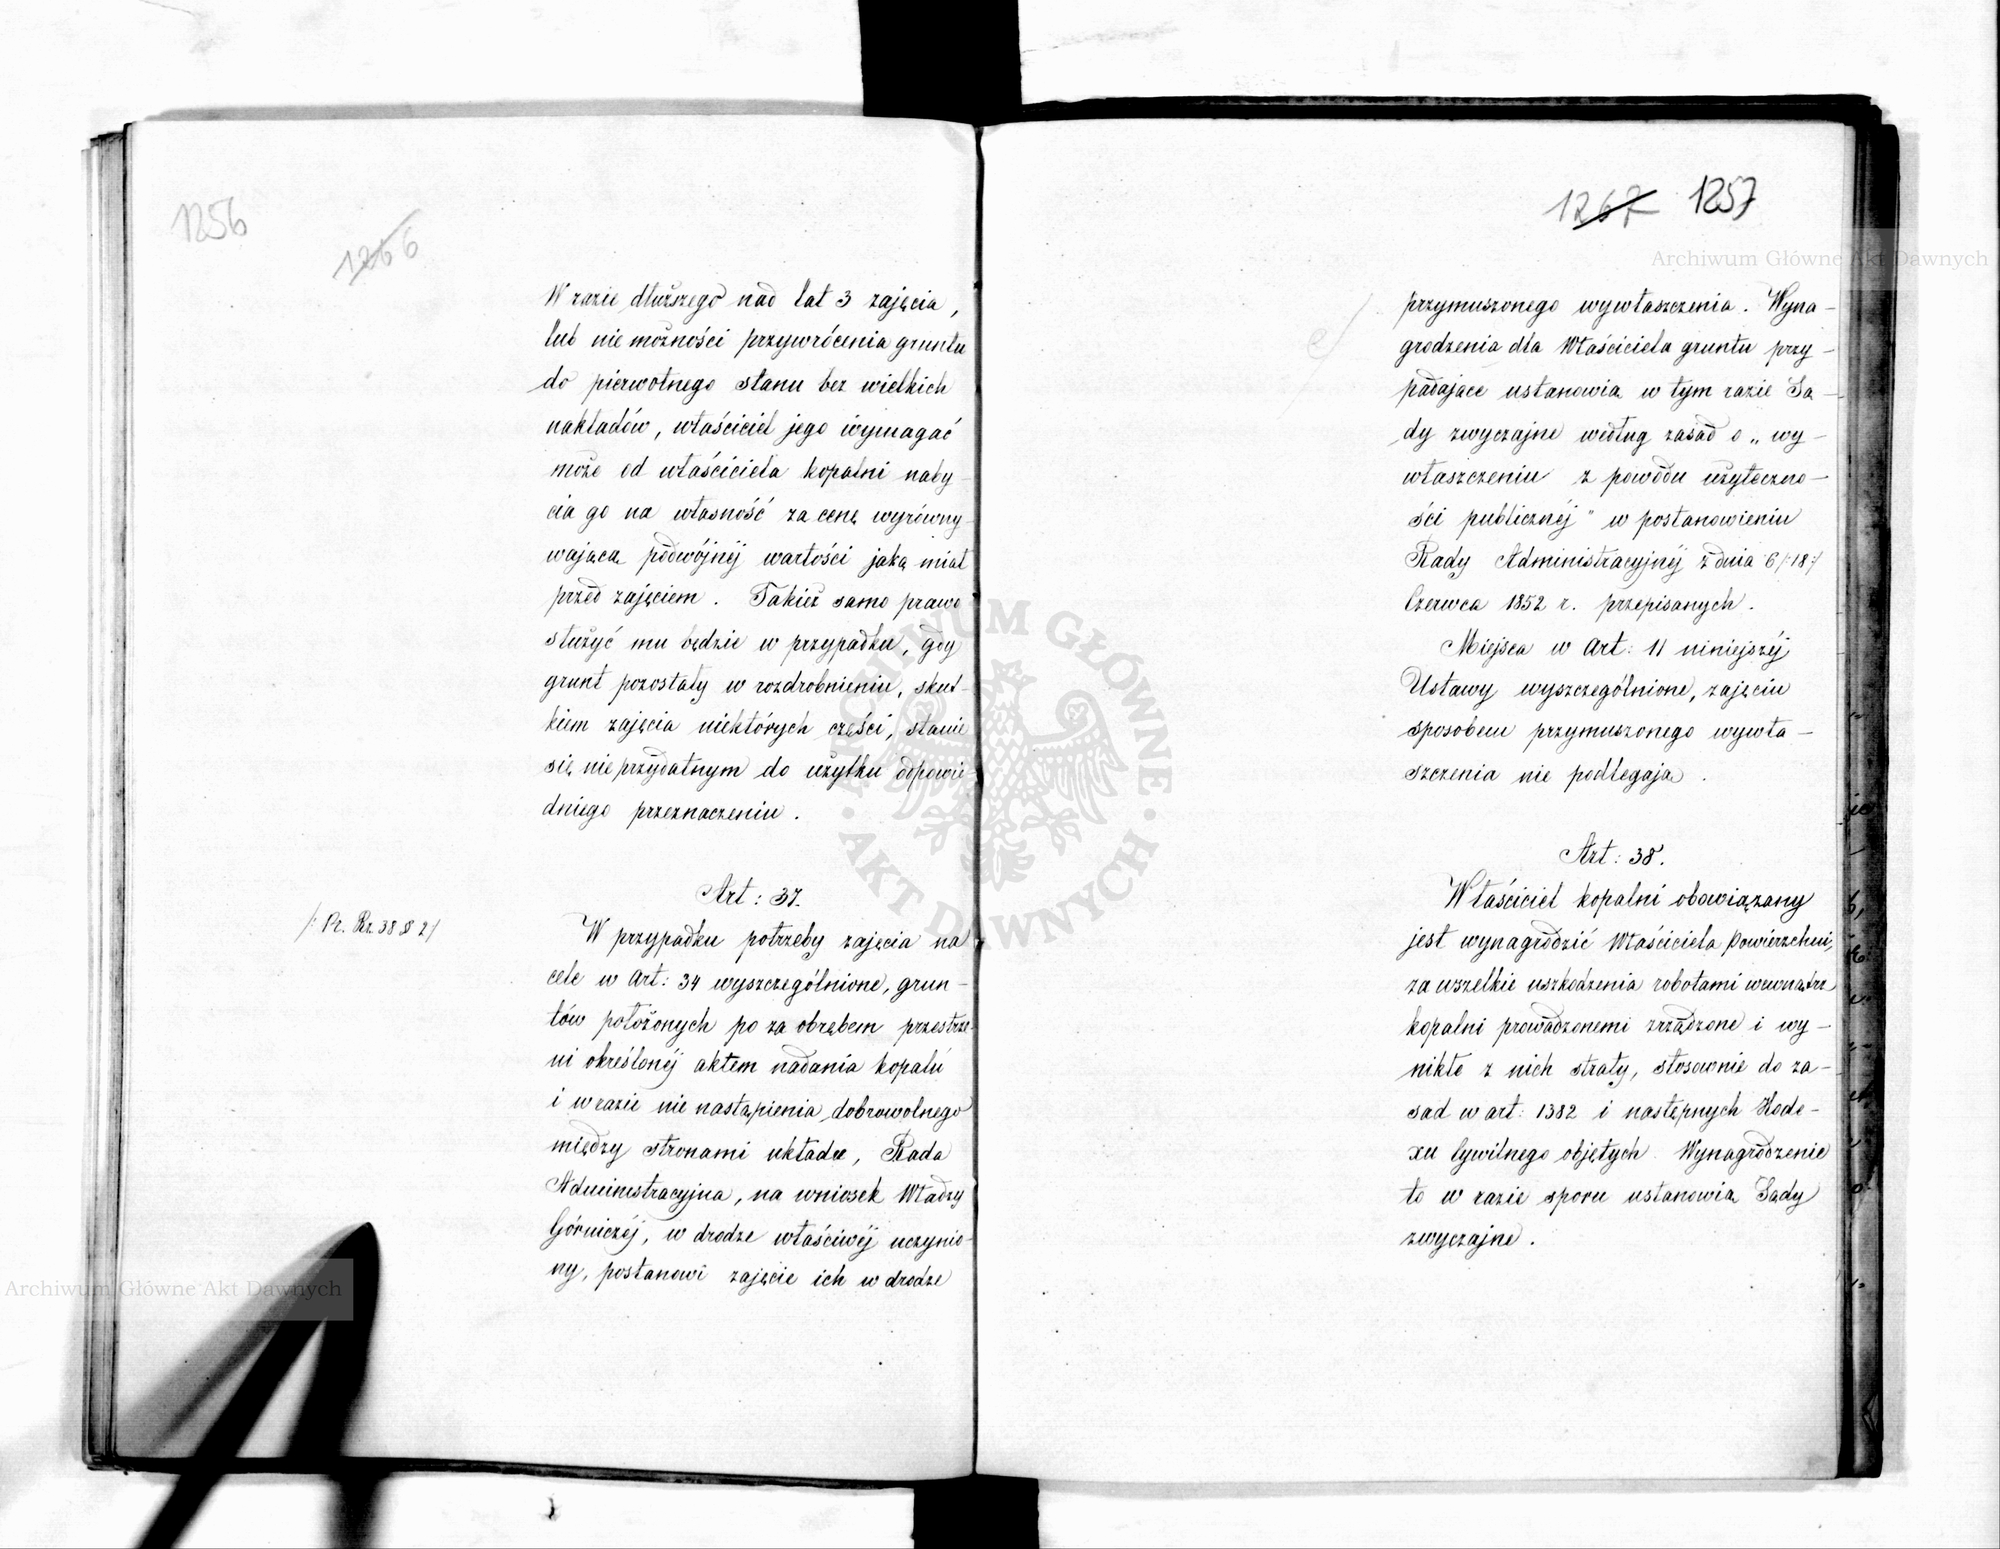 1256
1266
W razie dłuższego nad lat 3 zajęcia,
lub nie możności przywrócenia gruntu
do pierwotnego stanu bez wielkich
nakładów, właściciel jego wymagać
może od właściciela kopalni naby-
cia go na własność za cenę wyrówny-
wającą podwójnéj wartości jaką miał
przed zajęciem. Takież samo prawo
służyć mu będzie w przypadku, gdy
grunt pozostały w rozdrobnieniu, skut-
kiem zajęcia niektórych części, stanie
się nieprzydatnym do użytku odpowie-
dniego przeznaczeniu.
Art: 37.
/: Pr. Rz. 38 § 2 /
W przypadku potrzeby zajęcia na
cele w Art: 34 wyszczególnione, grun-
tów położonych po za obrębem przestrze-
ni określonéj aktem nadania kopalń
i w razie nie nastąpienia dobrowolnego
między stronami układu, Rada
Administracyjna, na wniosek Władzy
Górniczéj, w drodze właściwéj uczynio-
ny, postanowi zajęcie ich w drodze
1267 1257
przymuszonego wywłaszczenia. Wyna-
grodzenia dla Właściciela gruntu przy-
padające ustanowią w tym razie Są-
dy zwyczajne według zasad o „wy-
właszczeniu z powodu użyteczno-
ści publicznéj" w postanowieniu
Rady Administracyjnéj z dnia 6 /:18:/
Czerwca 1852 r. przepisanych.
Miejsca w Art: 11 niniejszéj
Ustawy wyszczególnione, zajęciu
sposobem przymuszonego wywła-
szczenia nie podlegają.
Art: 38.
Właściciel kopalni obowiązany
jest wynagrodzić Właściciela powierzchni,
za wszelkie uszkodzenia robotami wewnątrz
kopalni prowadzonemi zrządzone i wy-
nikłe z nich straty, stosownie do za-
sad w art: 1382 i następnych Kode-
xu Cywilnego objętych. Wynagrodzenie
to w razie sporu ustanowią Sądy
zwyczajne.
Archiwum Główne Akt Dawnych
Archiwum Główne Akt Dawnych
ARCHIWUM GŁÓWNE · AKT DAWNYCH ·